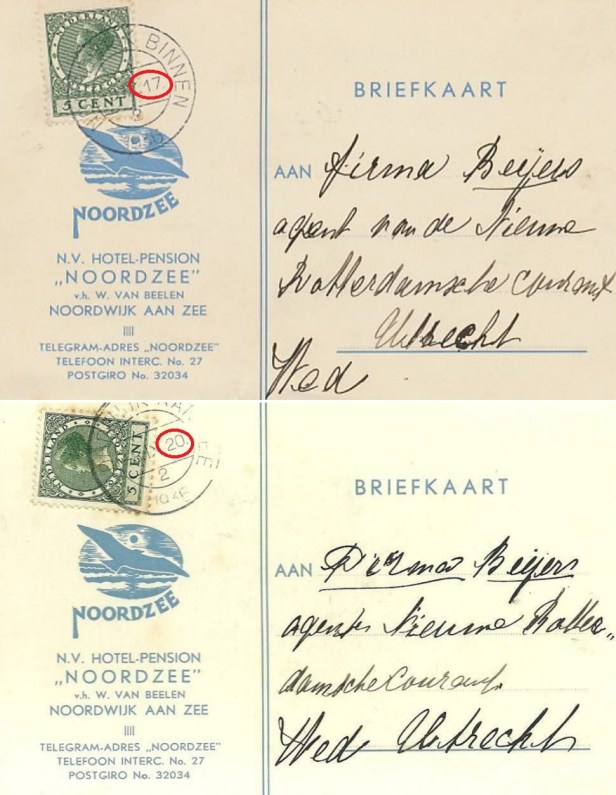 NEDERLAND
5 CENT
BINNEN
17.
NOORDZEE
N.V. HOTEL-PENSION
„NOORDZEE”
v.h. W. VAN BEELEN
NOORDWIJK AAN ZEE
TELEGRAM-ADRES „NOORDZEE”
TELEFOON INTERC. No. 27
POSTGIRO No. 32034
BRIEFKAART
AAN firma Beijers
agent van de Nieuwe
Rotterdamsche Courant
Utrecht
Wed
NEDERLAND
5 CENT
20.
2
NOORDZEE
N.V. HOTEL-PENSION
„NOORDZEE”
v.h. W. VAN BEELEN
NOORDWIJK AAN ZEE
TELEGRAM-ADRES „NOORDZEE”
TELEFOON INTERC. No. 27
POSTGIRO No. 32034
BRIEFKAART
AAN Firma Beijers
agent Nieuwe Rotter„
damsche Courant.
Wed Utrecht